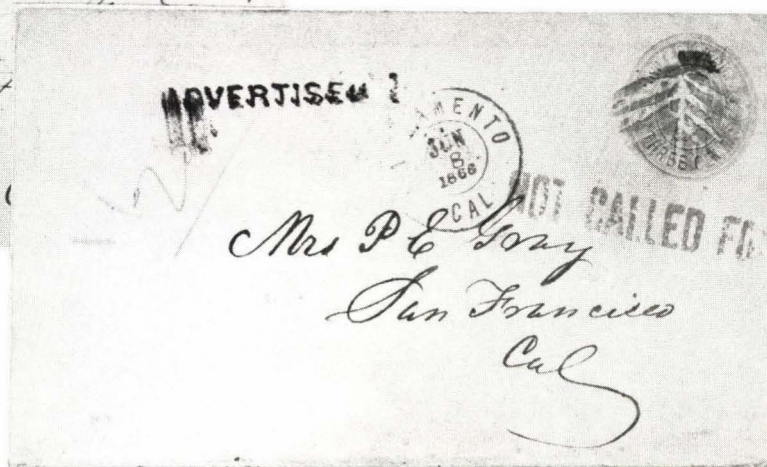 ADVERTISED
MENTO
JUN
8
1866
CAL
THREE
NOT CALLED FO
Mrs P E Gray
San Francisco
Cal